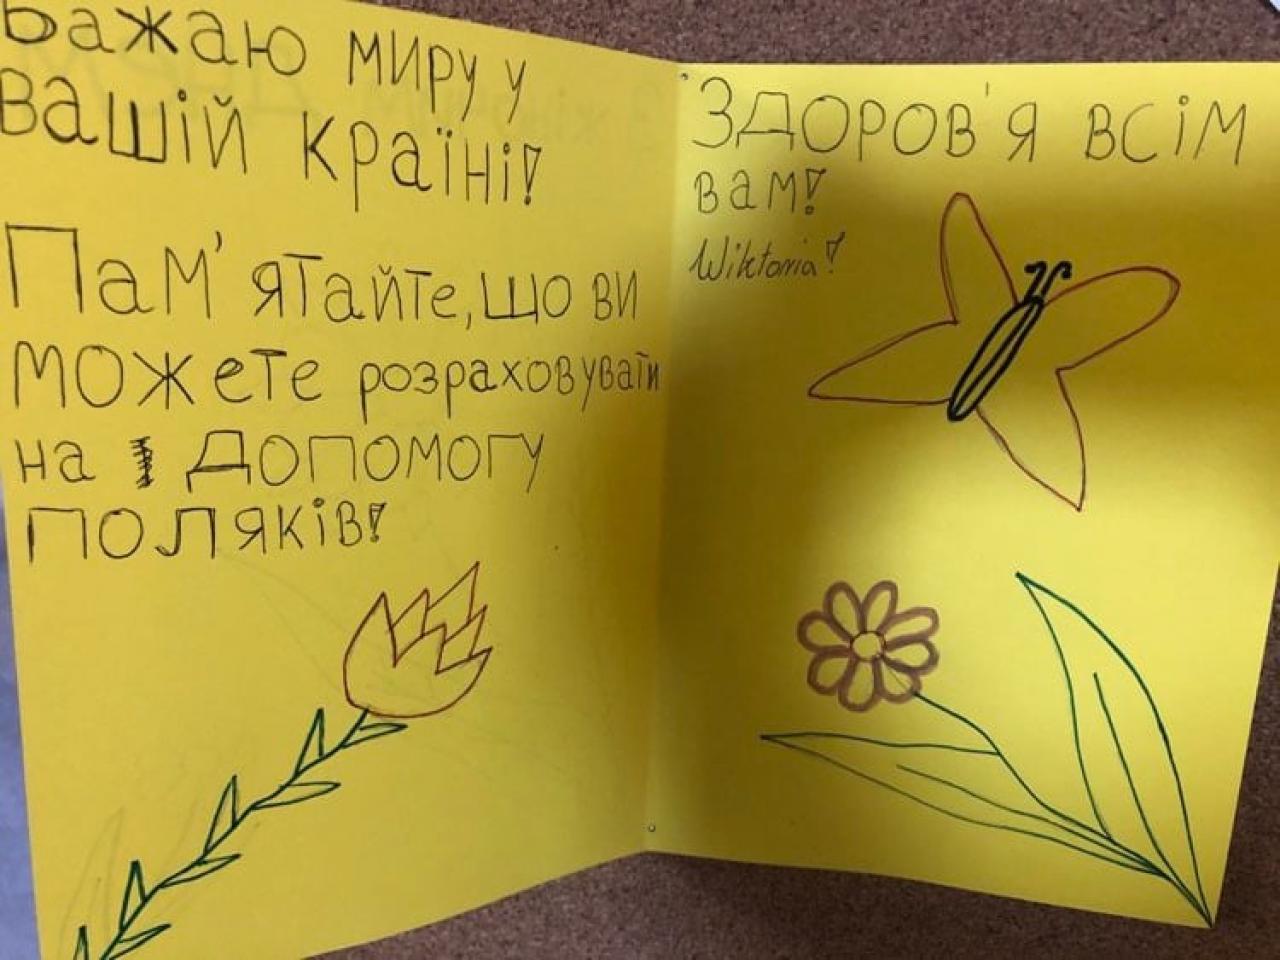 Бажаю миру у
вашій країні!
Пам'ятайте, що ви
можете розраховувати
на допомогу
поляків!
Здоров'я всім
вам!
Wiktoria!